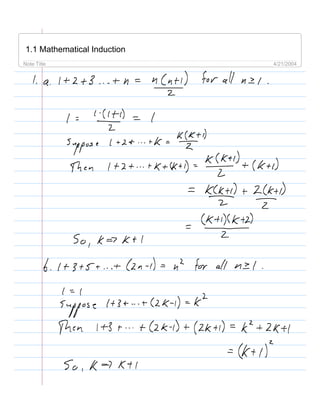 1.1 Mathematical Induction
Note Title 4/21/2004
1. a. 1+2+3 ... + n = n(n+1)/2 for all n ≥ 1.
1 = 1·(1+1)/2 = 1
Suppose 1+2+...+K = K(K+1)/2
Then 1+2+...+K+(K+1) = K(K+1)/2 + (K+1)
= K(K+1)/2 + 2(K+1)/2
= (K+1)(K+2)/2
So, K ⇒ K+1
b. 1+3+5+...+(2n-1) = n² for all n ≥ 1.
1 = 1
Suppose 1+3+...+(2K-1) = K²
Then 1+3+...+(2K-1)+(2K+1) = K²+2K+1
= (K+1)²
So, K ⇒ K+1